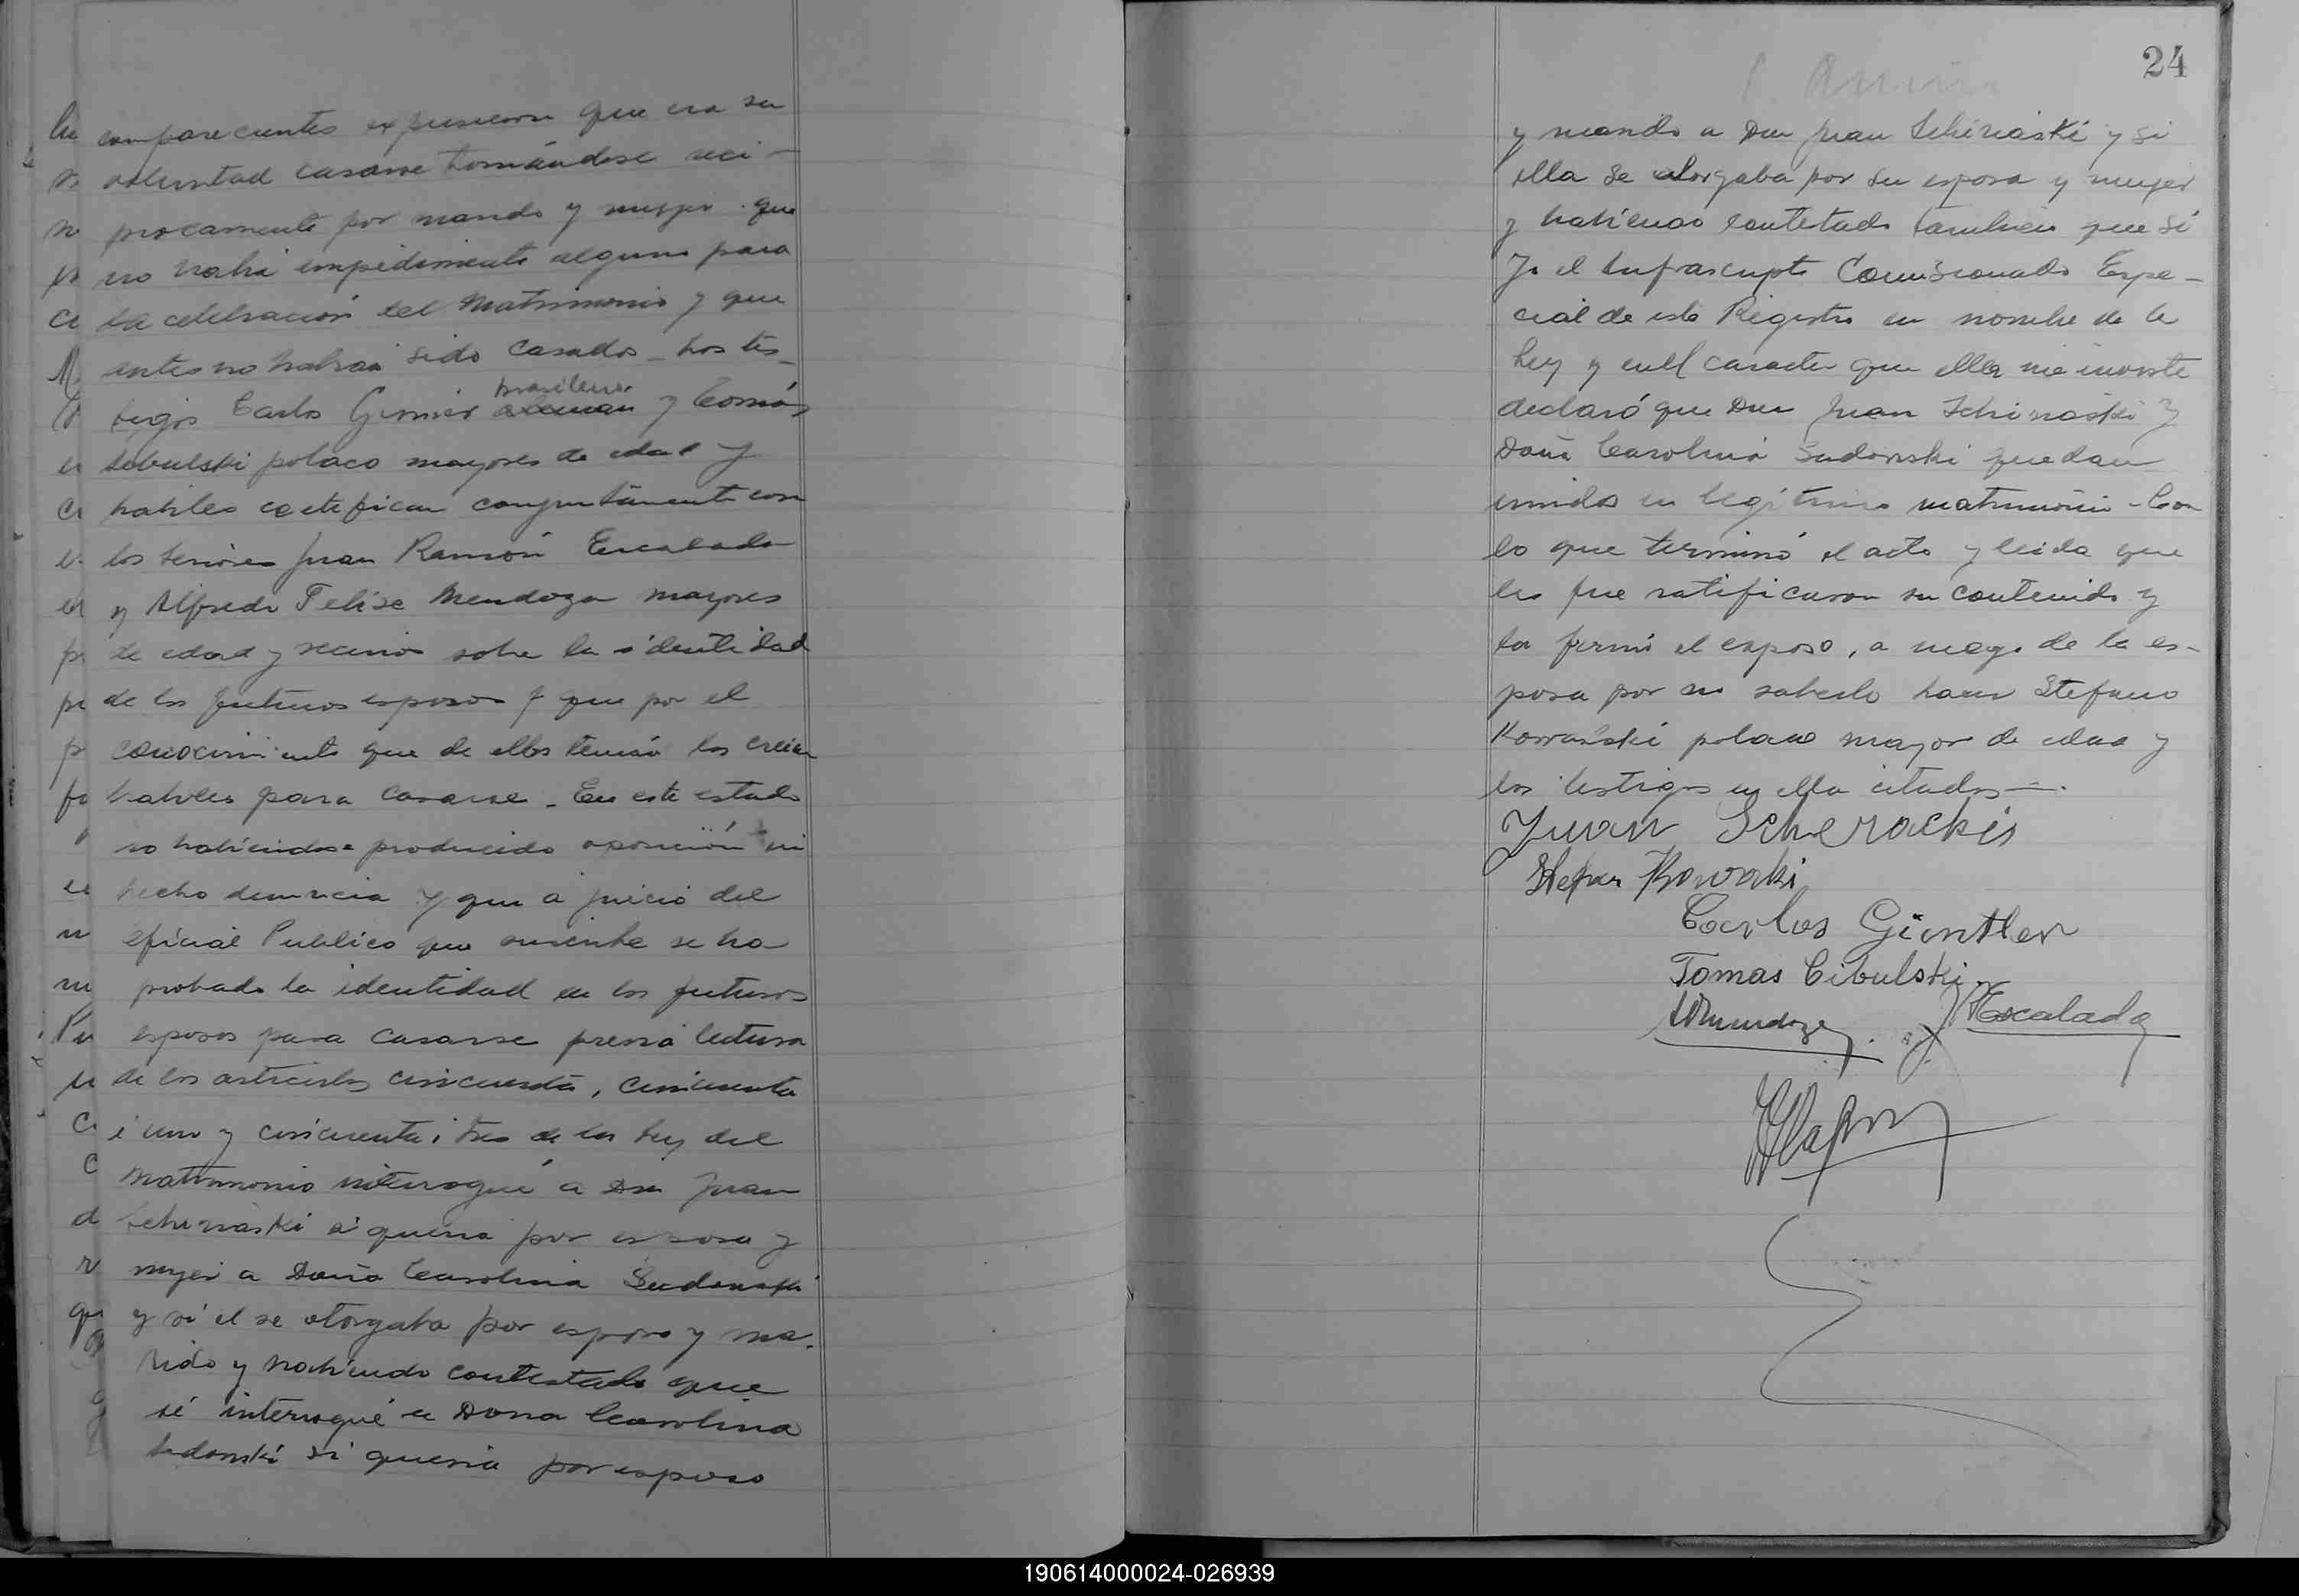 comparecientes expusieron que era su
voluntad casarse tomándose reci-
procamente por marido y mujer que
no habia impedimento alguno para
la celebracion del Matrimonio y que
antes no habian sido casados - Los tes-
brasilero
tigos Carlos aleman y Tomás
Sebulski polaco mayores de edad y
habiles certifican conjuntamente con
los señores Juan Ramón Escalada
y Alfredo Felise Mendoza mayores
de edad y vecinos sobre la identidad
de los futuros esposos y que por el
conocimiento que de ellos tenian los creian
habiles para casarse - En este estado
no habiendose producido oposición ni
hecho denuncia y que a juicio del
oficial Publico que suscribe se ha
probado la identidad de los futuros
esposos para casarse previa lectura
de los articulos cincuenta, cincuenta
i uno y cincuenta i tres de la Ley del
Matrimonio interrogué a Don Juan
Schiraski si queria por esposa y
mujer a Doña Carolina Sudonski
y si el se otorgaba por esposo y ma-
rido y habiendo contestado que
sí interrogué a Dona Carolina
Sudonski si queria por esposo
24
y marido a Don Juan Schiraski y si
ella se otorgaba por su esposa y mujer
y habiendo contestado tambien que sí
Yo el Infrascripto Comisionado Espe-
cial de este Registro en nombre de la
Ley y en el caracter que ella me inviste
declaró que Don Juan Schiraski y
Doña Carolina Sudonski quedan
unidos en legítimo matrimonio - Con
lo que terminó el acto y leida que
les fue ratificaron su contenido y
la firmó el esposo, a ruego de la es-
posa por no saberlo hacer Stefano
Kowalski polaco mayor de edad y
los testigos en ella citados —.
Juan Scherackis
Stefan Kowalski
Carlos Güntler
Tomas Cibulski
AFMendoza JREscalada
190614000024-026939